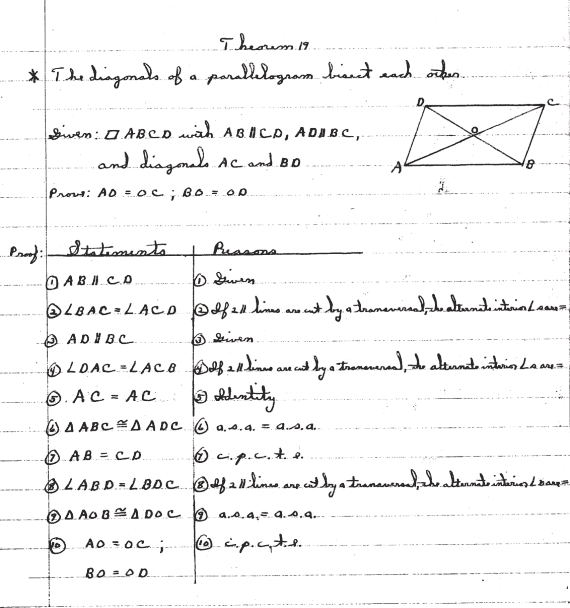 Theorem 19
* The diagonals of a parallelogram bisect each other.
Given: ▱ ABCD with AB∥CD, AD∥BC,
and diagonals AC and BD
Prove: AO = OC ; BO = OD
D C
O
A B
Proof: Statements Reasons
① AB ∥ CD ① Given
② ∠BAC = ∠ACD ② If 2 ∥ lines are cut by a transversal, the alternate interior ∠s are =
③ AD ∥ BC ③ Given
④ ∠DAC = ∠ACB ④ If 2 ∥ lines are cut by a transversal, the alternate interior ∠s are =
⑤ AC = AC ⑤ Identity
⑥ ΔABC ≅ ΔADC ⑥ a.s.a. = a.s.a.
⑦ AB = CD ⑦ c.p.c.t.e.
⑧ ∠ABD = ∠BDC ⑧ If 2 ∥ lines are cut by a transversal, the alternate interior ∠s are =
⑨ ΔAOB ≅ ΔDOC ⑨ a.s.a. = a.s.a.
⑩ AO = OC ; ⑩ c.p.c.t.e.
BO = OD